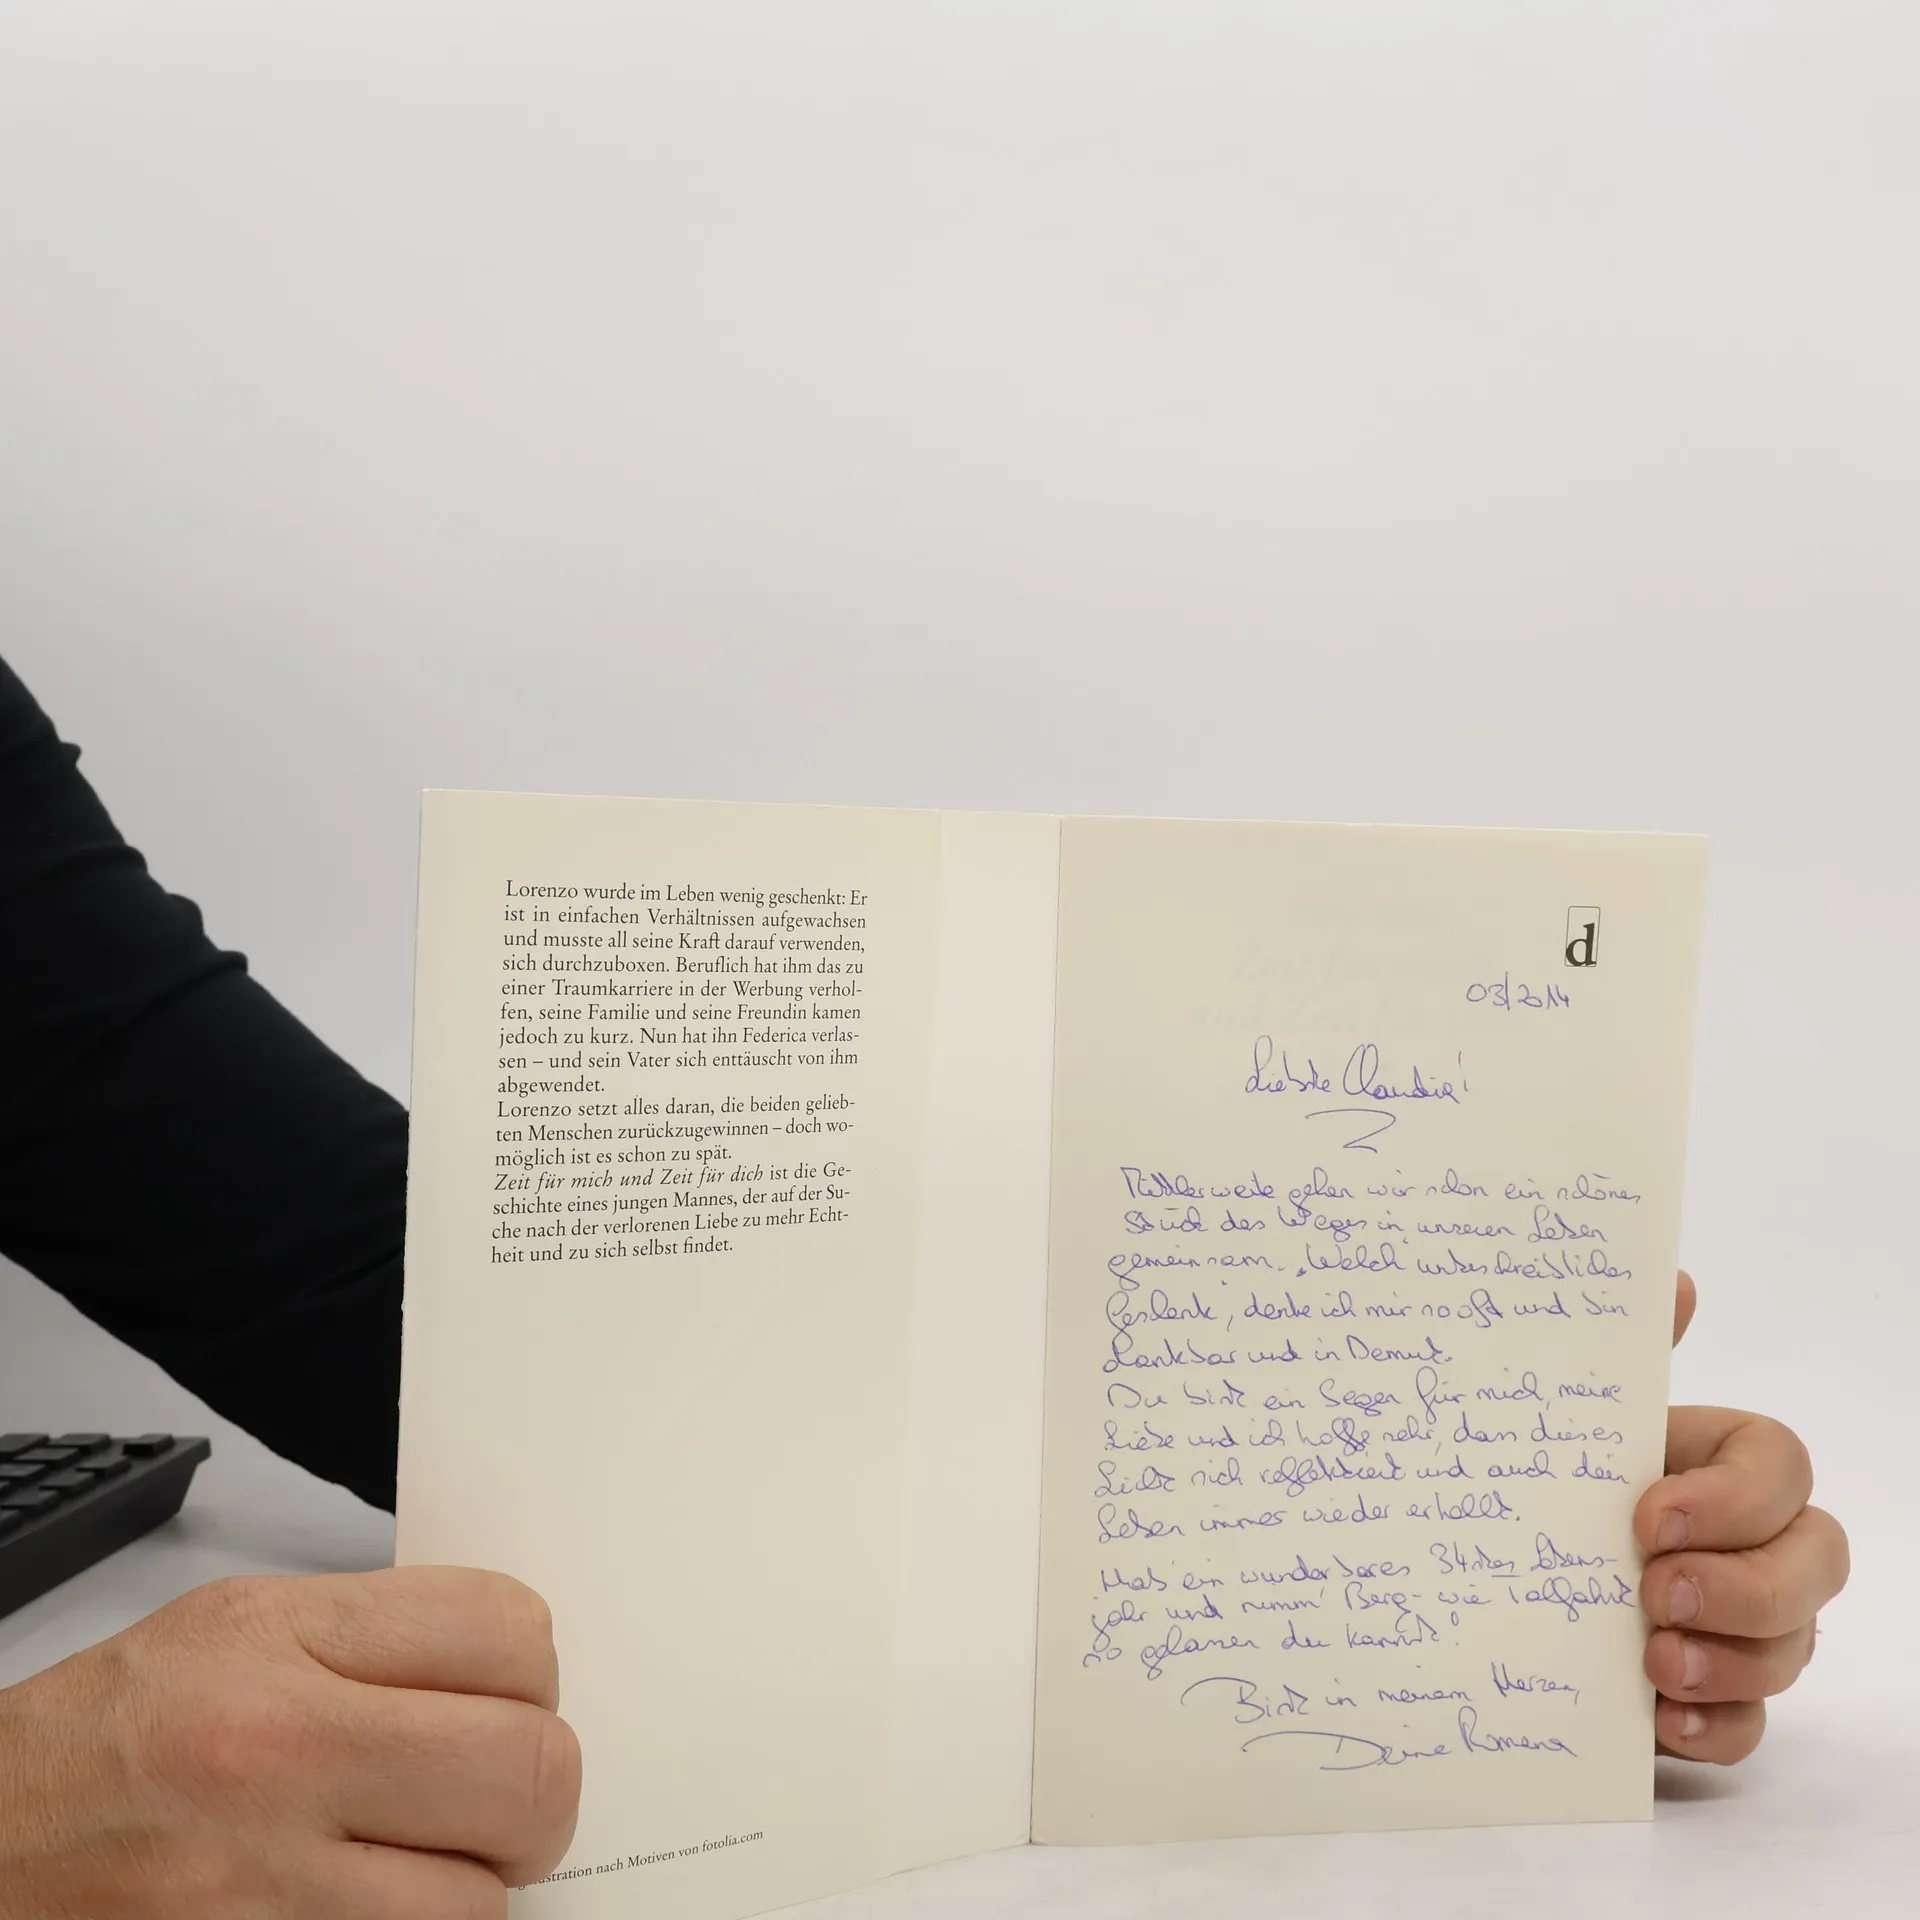 Lorenzo wurde im Leben wenig geschenkt: Er
ist in einfachen Verhältnissen aufgewachsen
und musste all seine Kraft darauf verwenden,
sich durchzuboxen. Beruflich hat ihm das zu
einer Traumkarriere in der Werbung verhol-
fen, seine Familie und seine Freundin kamen
jedoch zu kurz. Nun hat ihn Federica verlas-
sen – und sein Vater sich enttäuscht von ihm
abgewendet.
Lorenzo setzt alles daran, die beiden gelieb-
ten Menschen zurückzugewinnen – doch wo-
möglich ist es schon zu spät.
Zeit für mich und Zeit für dich ist die Ge-
schichte eines jungen Mannes, der auf der Su-
che nach der verlorenen Liebe zu mehr Echt-
heit und zu sich selbst findet.
nach Motiven von fotolia.com
d
03/2014
Liebste Claudia!
Mittlerweile gehen wir schon ein schönes
Stück des Weges in unseren Leben
gemeinsam. „Welch unbeschreibliches
Geschenk", denke ich mir so oft und bin
dankbar und in Demut.
Du bist ein Segen für mich, meine
Liebe und ich hoffe sehr, dass dieses
Licht sich reflektiert und auch dein
Leben immer wieder erhellt.
Hab' ein wunderbares 34stes Lebens-
jahr und nimm' Berg- wie Talfahrt
so gelassen du kannst!
Bist in meinem Herzen,
Deine Romana